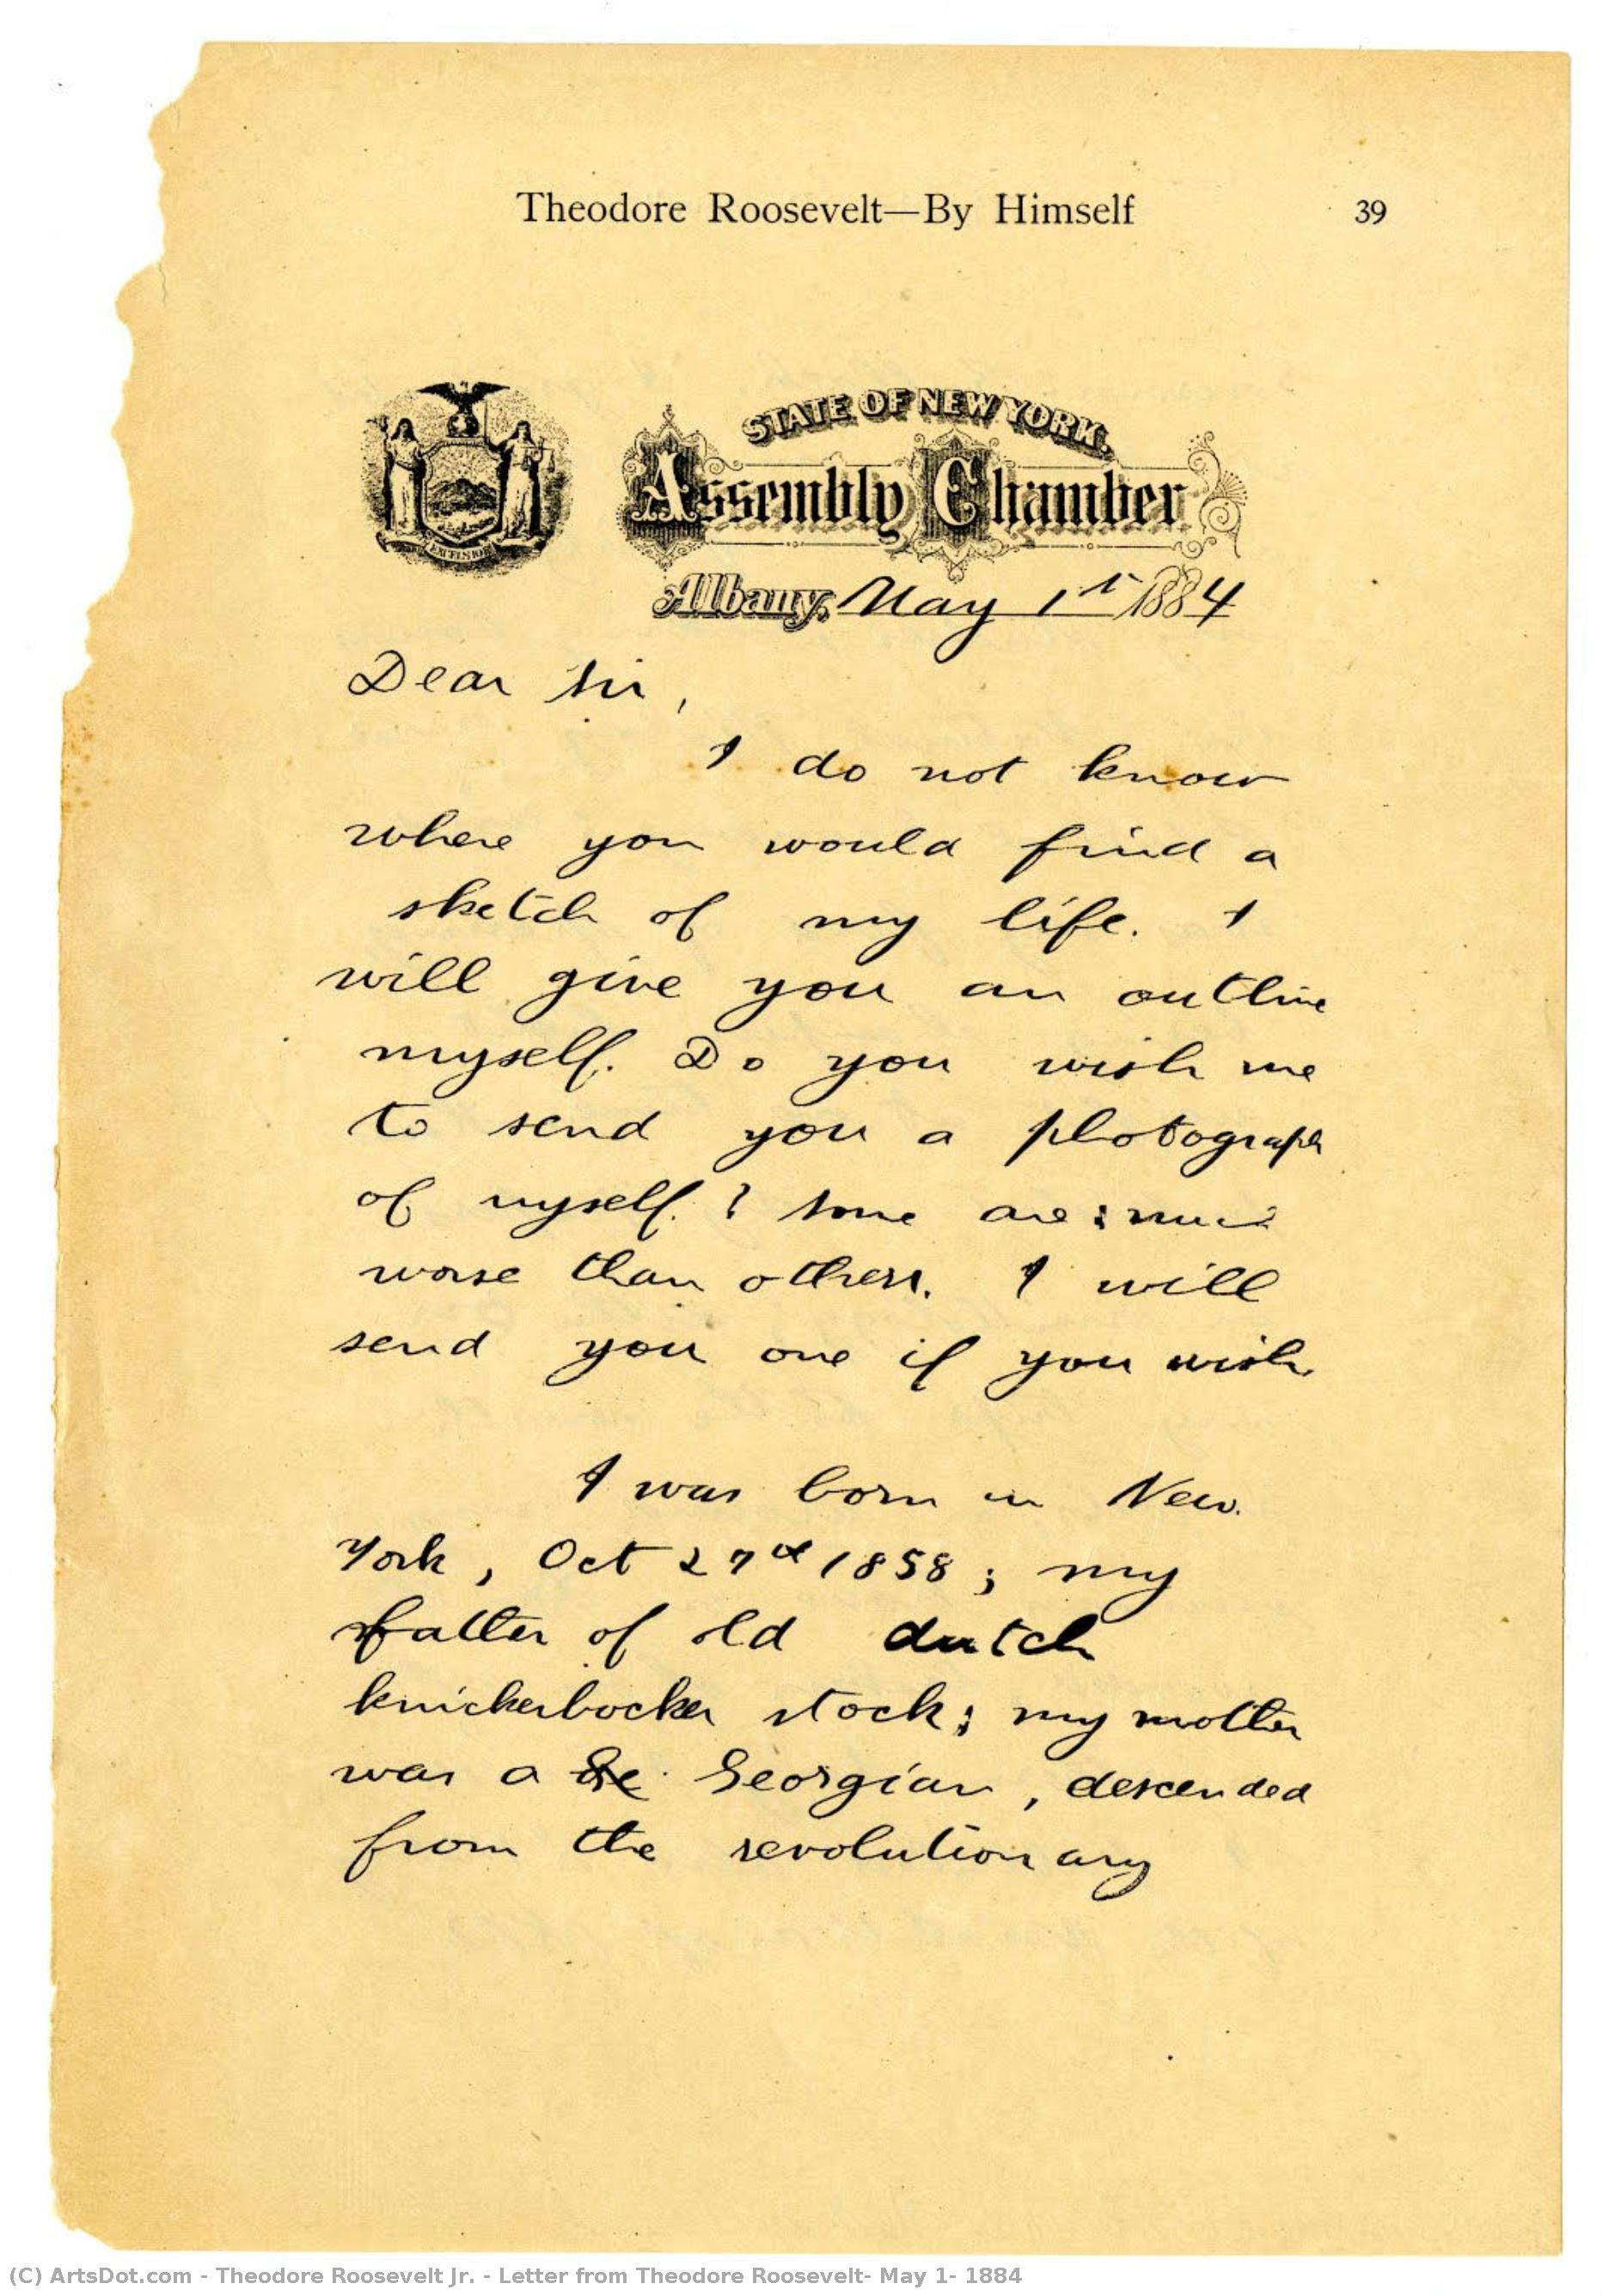 Theodore Roosevelt—By Himself 39
STATE OF NEW YORK.
Assembly Chamber
EXCELSIOR
Albany, May 1st 1884
Dear Sir,
I do not know
where you would find a
sketch of my life. I
will give you an outline
myself. Do you wish me
to send you a photograph
of myself? Some are much
worse than others. I will
send you one if you wish.
I was born in New
York, Oct 27th 1858; my
father of old dutch
knickerbocker stock; my mother
was a Ge Georgian, descended
from the revolutionary
(C) ArtsDot.com - Theodore Roosevelt Jr. - Letter from Theodore Roosevelt- May 1- 1884